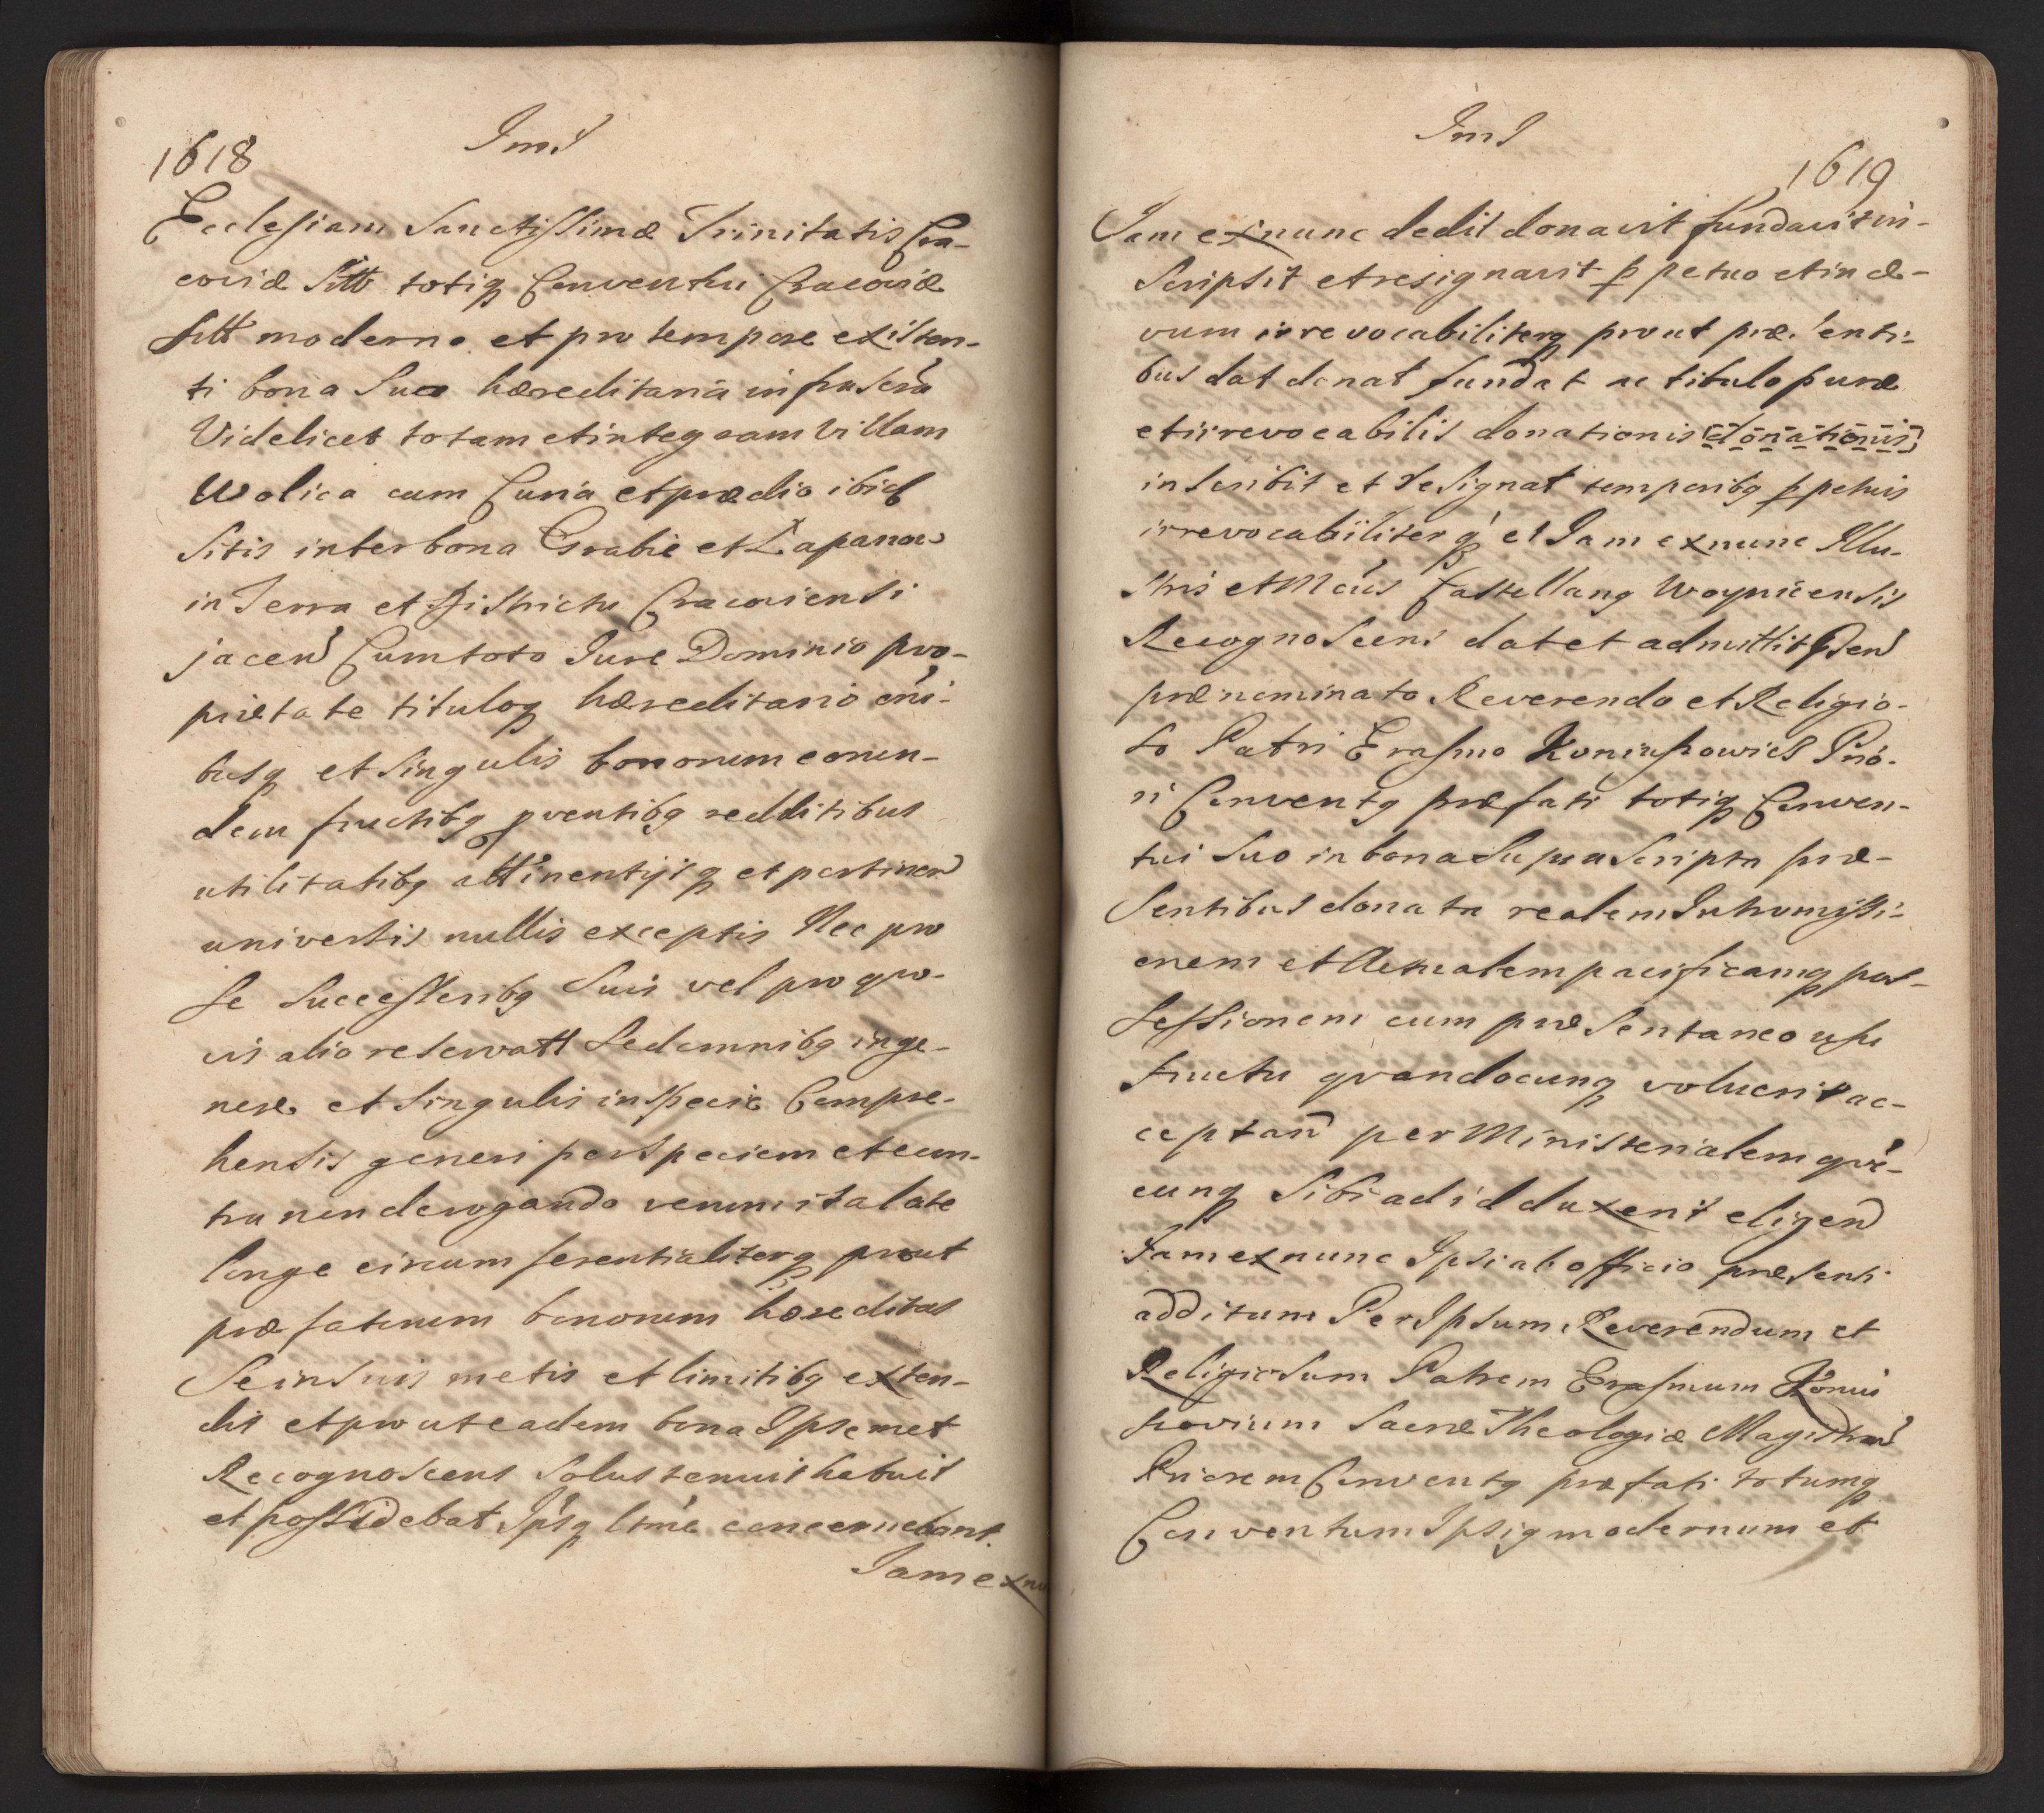 1618
Ims
Ecclesiam Sanctissimæ Trinitatis Cra-
coviæ Sitt totiq Conventui Cracoviæ
sitt moderno et pro tempore existen-
ti bona Sua hæreditaria infrascra
Videlicet totam et integram Villam
Wolica cum Curia et prædio ibid
Sitis inter bona Grabie et Łapanow
in Terra et Districtu Cracoviensi
jacen Cum toto Jure Dominio pro-
prietate tituloq hæreditario oni-
busq et Singulis bonorum eorun-
dem fructibq pventibq redditibus
utilitatibq attinentijsq et pertinen
universis nullis exceptis Nec pro
se Successoribq Suis vel pro quo-
vis alio reservatt Sed omnibq in ge-
nere et Singulis in Specie Compre-
hensis generi per Speciem et con-
tra non derogando verum ita late
longe circumferentialiterq prout
præfatorum bonorum hæreditas
Se in Suis metis et limitibq exten-
dit et prout eadem bona Ipsemet
Recognoscens Solus tenuit habuit
et possidebat Ipsq ltme concernebant.
Jam exnu
Ims
1619
Jam exnunc dedit donavit fundavit in-
Scripsit et resignavit ppetuo et in æ-
vum irrevocabiliterq prout præsenti-
bus dat donat fundat ac titulo puræ
et irrevocabilis donationis (donationis)
inscribit et resignat temporibq ppetuis
irrevocabiliterq et Jam exnunc Illu-
stris et Mcus Castellanq Woynicensis
Recognoscens dat et admittit Iden
prænominato Reverendo et Religio-
so Patri Erasmo Koniuszowicz Prio-
ri Conventq præfati totiq Conven-
tui Suo in bona Suprascripta præ-
Sentibus donata realem Intromissi-
onem et Actualem pacificamq pos-
sessionem cum præsentaneo usu
fructu quandocunq voluerit ac-
ceptan per Ministerialem que-
cunq Sibi ad id duxerit eligen
Jam exnunc Ipsi ab officio præsenti
additum Per Ipsum Reverendum et
Religiosum Patrem Erasmum Koniu
szovium Sacræ Theologiæ Magistru
Priorem Conventq præfati totumq
Conventum Ipsiq modernum et